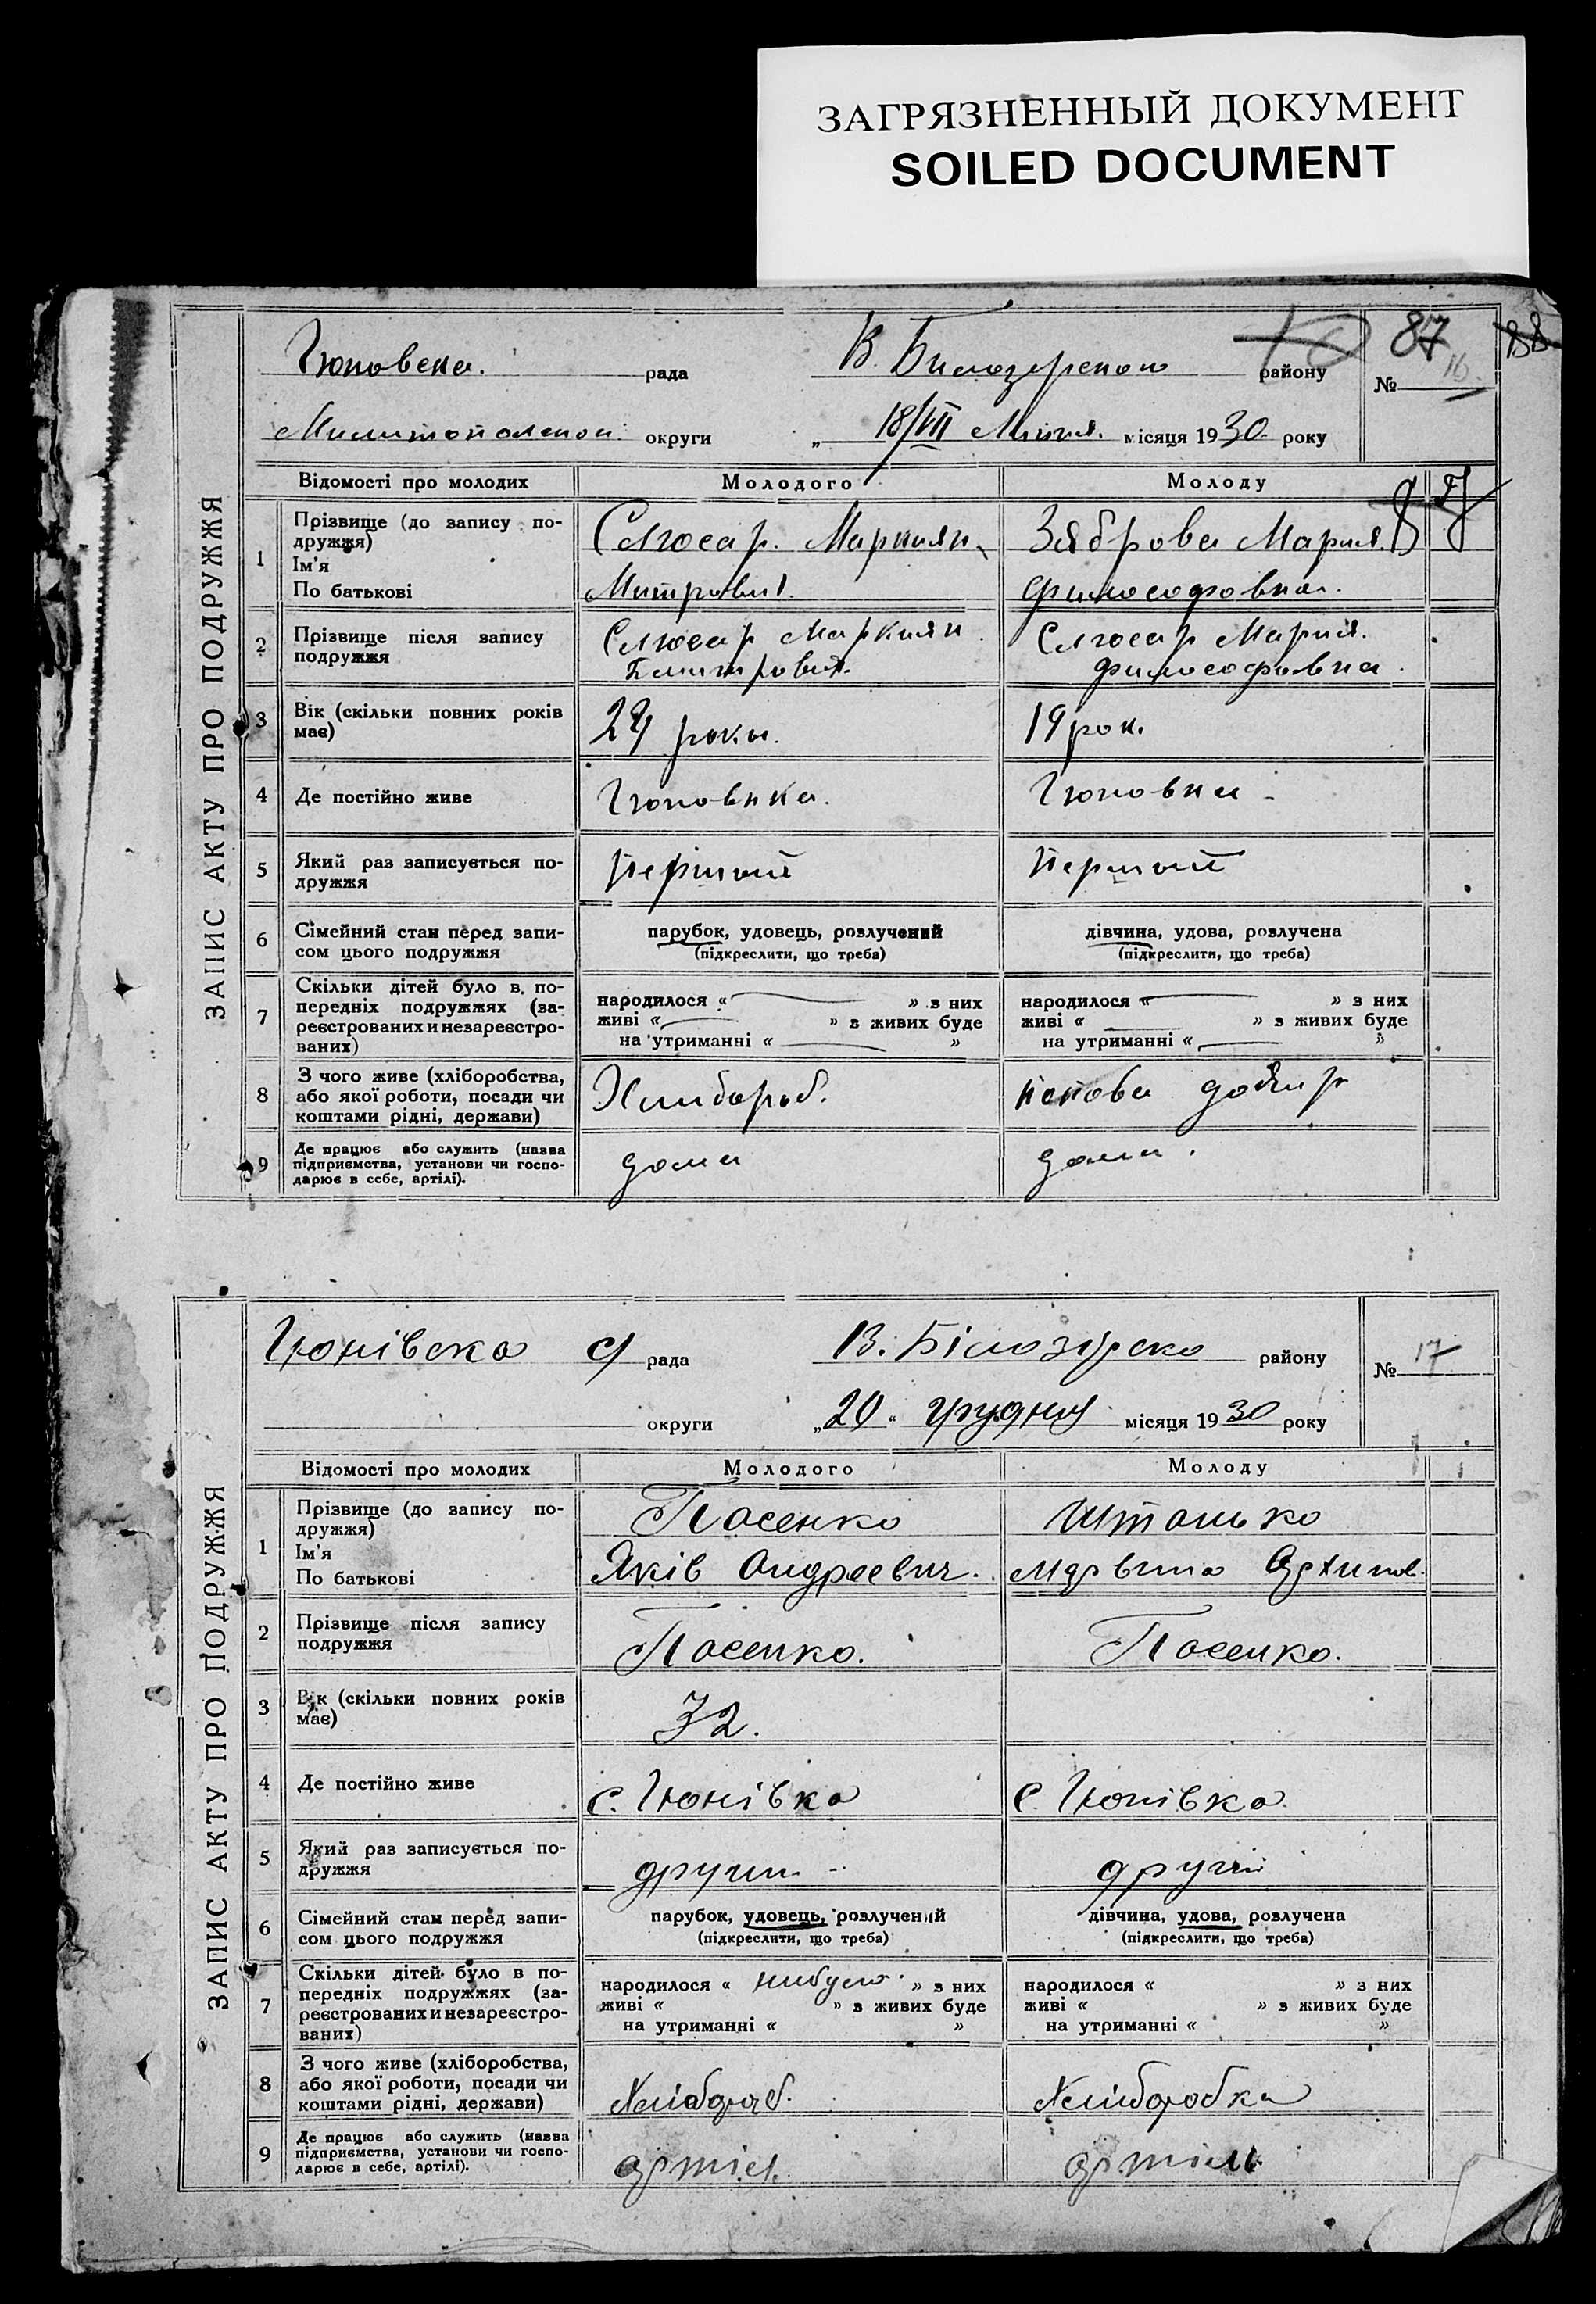 ЗАГРЯЗНЕННЫЙ ДОКУМЕНТ
SOILED DOCUMENT
ЗАПИС АКТУ ПРО ПОДРУЖЖЯ
рада В. Билозерского району № 87 16 88
Милитопольской округи „ 18/VII місяця 1930 року
Відомості про молодих Молодого Молоду
1 Прізвище (до запису по-
дружжя)
Ім'я
По батькові
Слюсар. Маркиян
Митрович
Зяброва Мария.
Философовна.
2 Прізвище після запису
подружжя
Слюсар Маркиян
Слюсар Мария.
Философовна.
3 Вік (скільки повних років
має)
роки. 19 рок.
4 Де постійно живе
5 Який раз записується по-
дружжя
Перший Перший
6 Сімейний стан перед запи-
сом цього подружжя
парубок, удовець, розлучений
(підкреслити, що треба)
дівчина, удова, розлучена
(підкреслити, що треба)
7 Скільки дітей було в по-
передніх подружжях (за-
реєстрованих и незареєстро-
ваних)
народилося « » з них
живі « » з живих буде
на утриманні « »
народилося « » з них
живі « » з живих буде
на утриманні « »
8 З чого живе (хліборобства,
або якої роботи, посади чи
коштами рідні, держави)
Хлибороб.
9 Де працює або служить (назва
підприємства, установи чи госпо-
дарює в себе, артілі).
дома дома.
ЗАПИС АКТУ ПРО ПОДРУЖЖЯ
с/рада В. Білозірско району № 17
округи „20“ грудня місяця 1930 року
Відомості про молодих Молодого Молоду
1 Прізвище (до запису по-
дружжя)
Ім'я
По батькові
Пасенко
Яків Андреевич.
Штанько
Архипов.
2 Прізвище після запису
подружжя
Пасенко. Пасенко.
3 Вік (скільки повних років
має)
32.
4 Де постійно живе
с. Цюпівка с. Цюпівка.
5 Який раз записується по-
дружжя
другий другий
6 Сімейний стан перед запи-
сом цього подружжя
парубок, удовець, розлучений
(підкреслити, що треба)
дівчина, удова, розлучена
(підкреслити, що треба)
7 Скільки дітей було в по-
передніх подружжях (за-
реєстрованих и незареєстро-
ваних)
народилося « нибуло » з них
живі « » з живих буде
на утриманні « »
народилося « » з них
живі « » з живих буде
на утриманні « »
8 З чого живе (хліборобства,
або якої роботи, посади чи
коштами рідні, держави)
Хлібороб. Хліборобка
9 Де працює або служить (назва
підприємства, установи чи госпо-
дарює в себе, артілі).
артіл. артіль